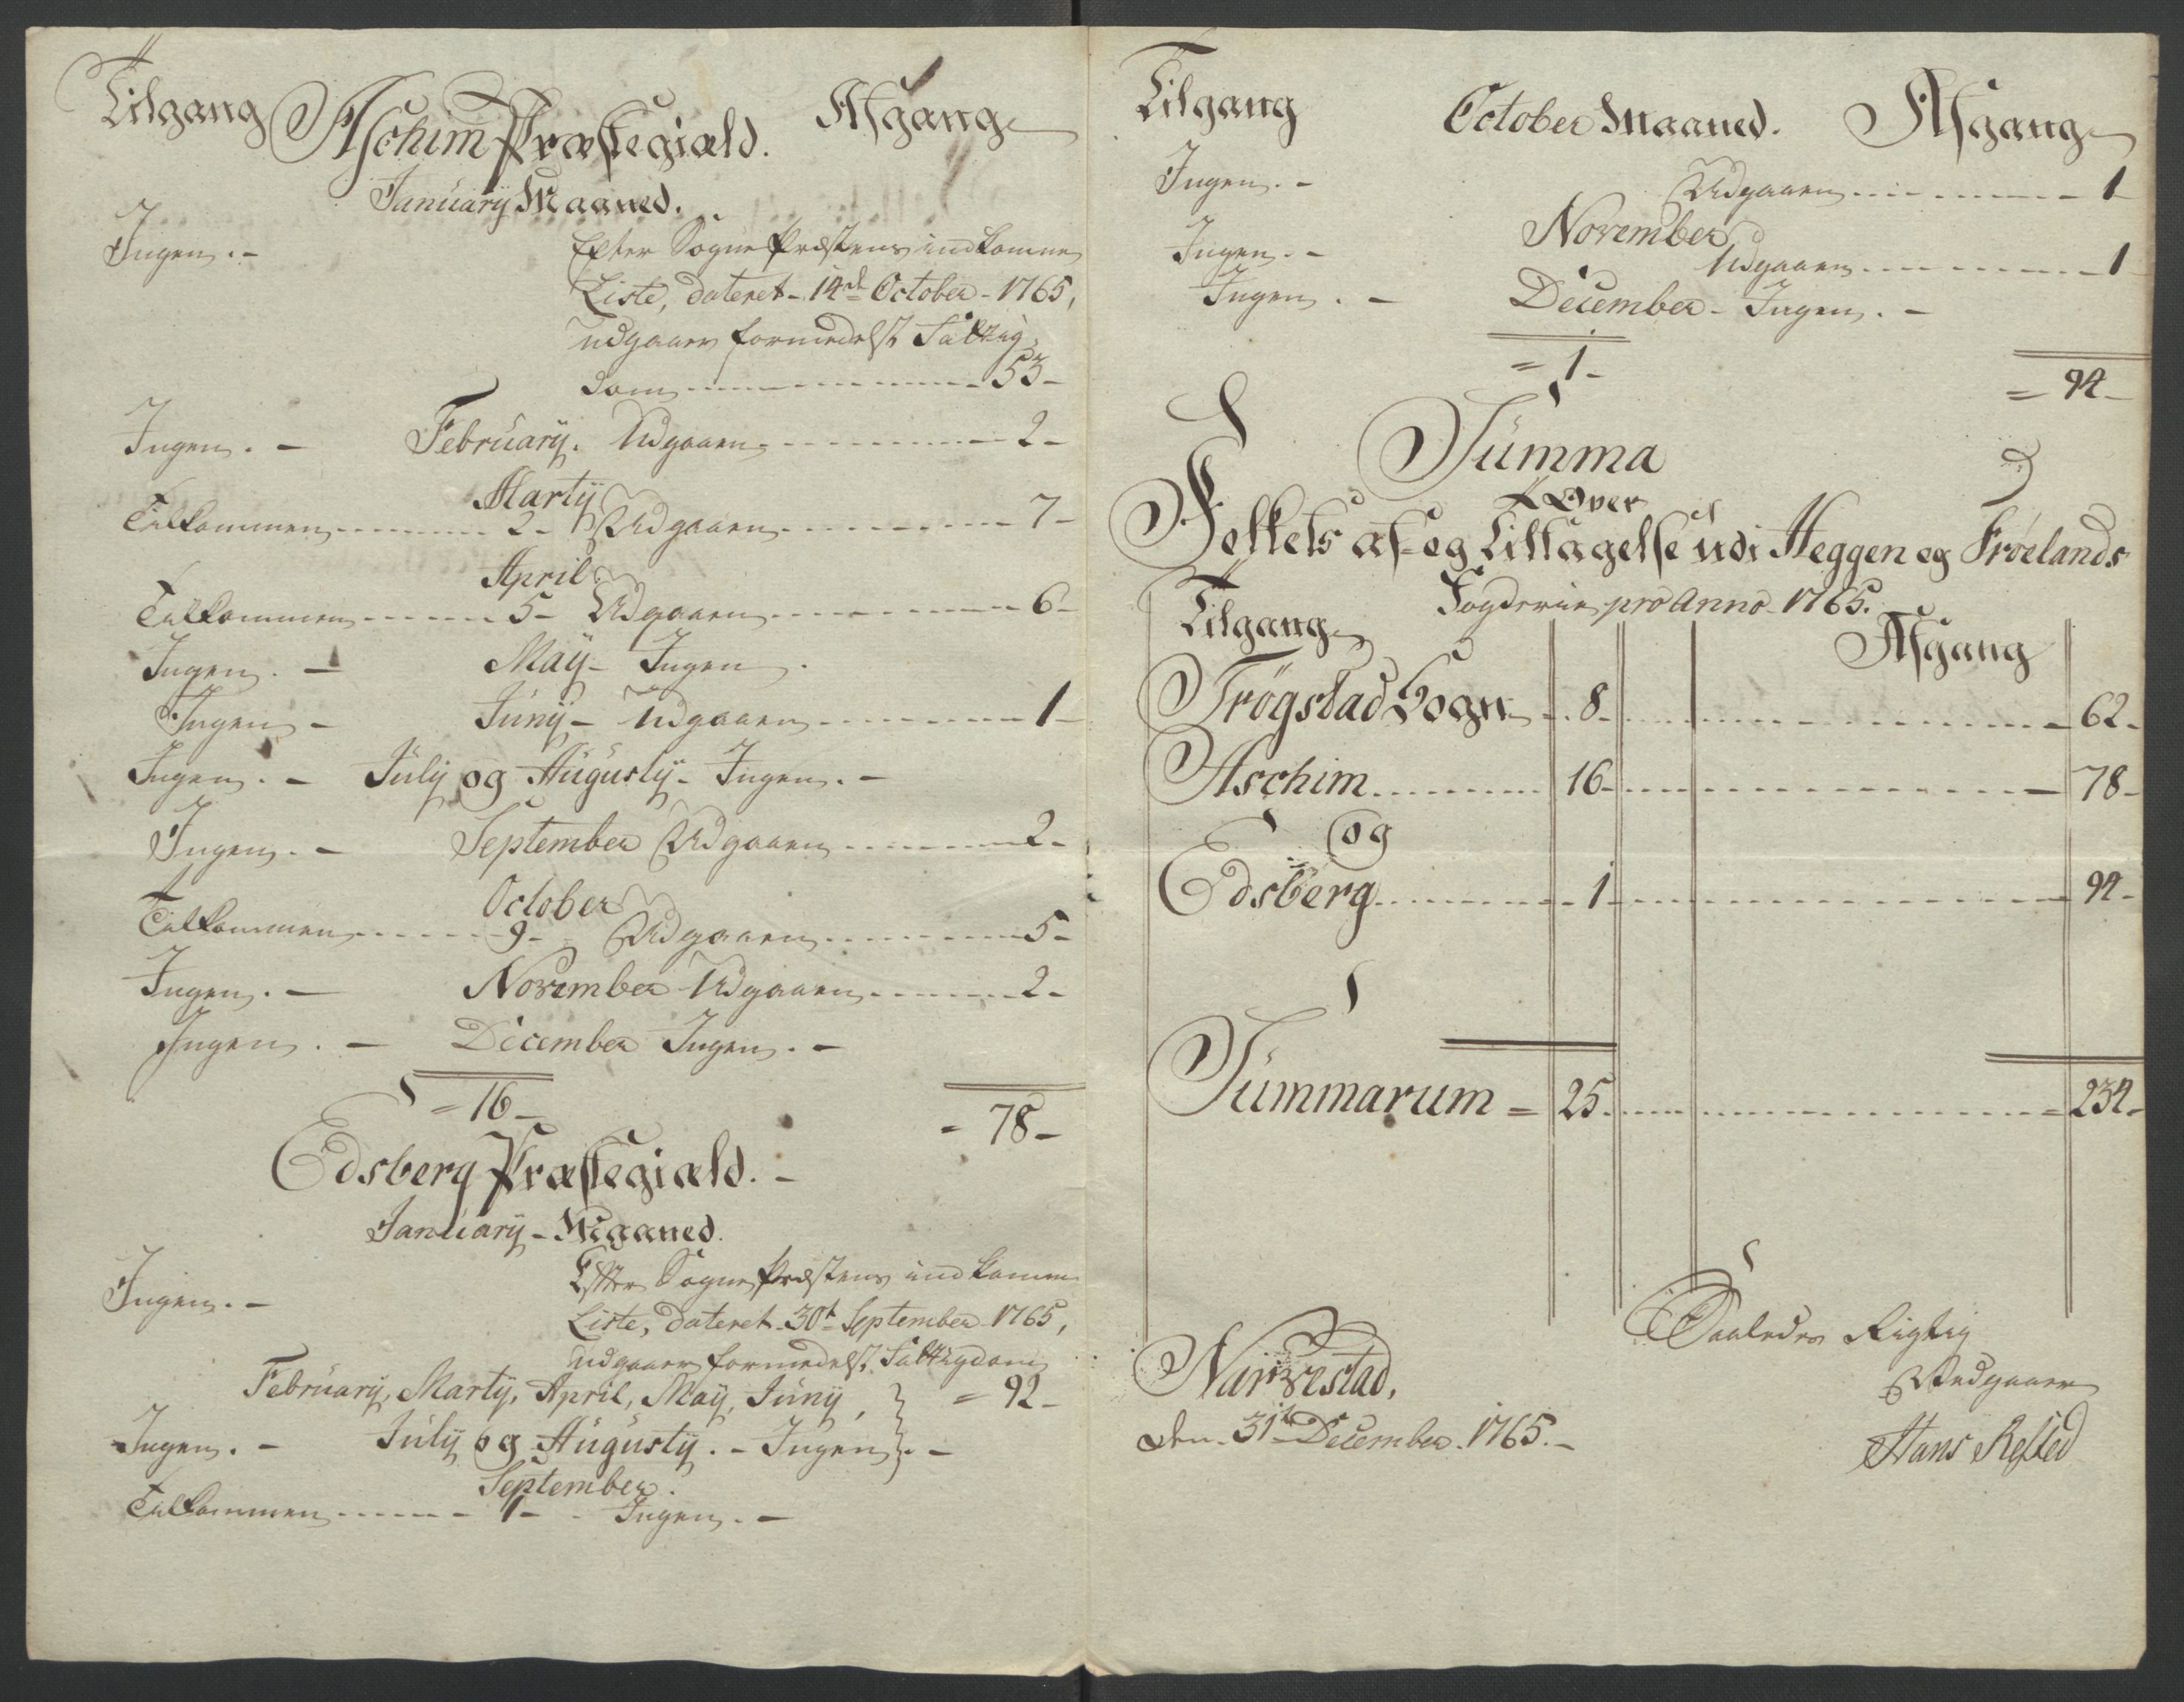 Tilgang Afgang
Aschim Præstegiæld.
January Maaned.
Ingen. - Efter Sogne Præstens indkomne
Liste, dateret - 14de October - 1765,
udgaaer formedelst Fattig,
dom - 53 -
Ingen. - February. Udgaaen - 2 -
Marty
Tilkommen - 2 - Udgaaen - 7 -
April
Tilkommen - 5 - Udgaaen - 6 -
Ingen. - May - Ingen.
Ingen - Juny - Udgaaen - 1 -
Ingen. - July og Augusty - Ingen. -
Ingen. - September Udgaaen - 2 -
October
Tilkommen - 9 - Udgaaen - 5 -
Ingen. - November Udgaaen - 2 -
Ingen. - December Ingen. -
= 16 -
- 78 -
Edsberg Præstegiæld. -
January - Maaned.
Ingen. - Efter Sogne Præstens indkomne
Liste, dateret 30t September 1765,
udgaaer formedelst Fattigdom
February, Marty, April, May, Juny, } = 92 -
Ingen. - July og Augusty. - Ingen. -
September.
Tilkommen - 1 - Ingen. -
Tilgang October Maaned. Afgang
Ingen. - Udgaaen - 1
November
Ingen. - Udgaaen - 1
Ingen. - December - Ingen. -
= 1 -
= 94 -
Summa
Over
Folkets af- og Tiltagelse udi Heggen og Frøelands
Fogderie pro Anno 1765.
Tilgang Afgang
Trøgstad Sogn - 8 - 62 -
Aschim - 16 - 78 -
og
Edsberg - 1 - 94 -
Summarum = 25 - 234 -
Saaledes Rigtig
Vedgaaer
Narvestad,
den 31t December 1765. -
Hans Rested